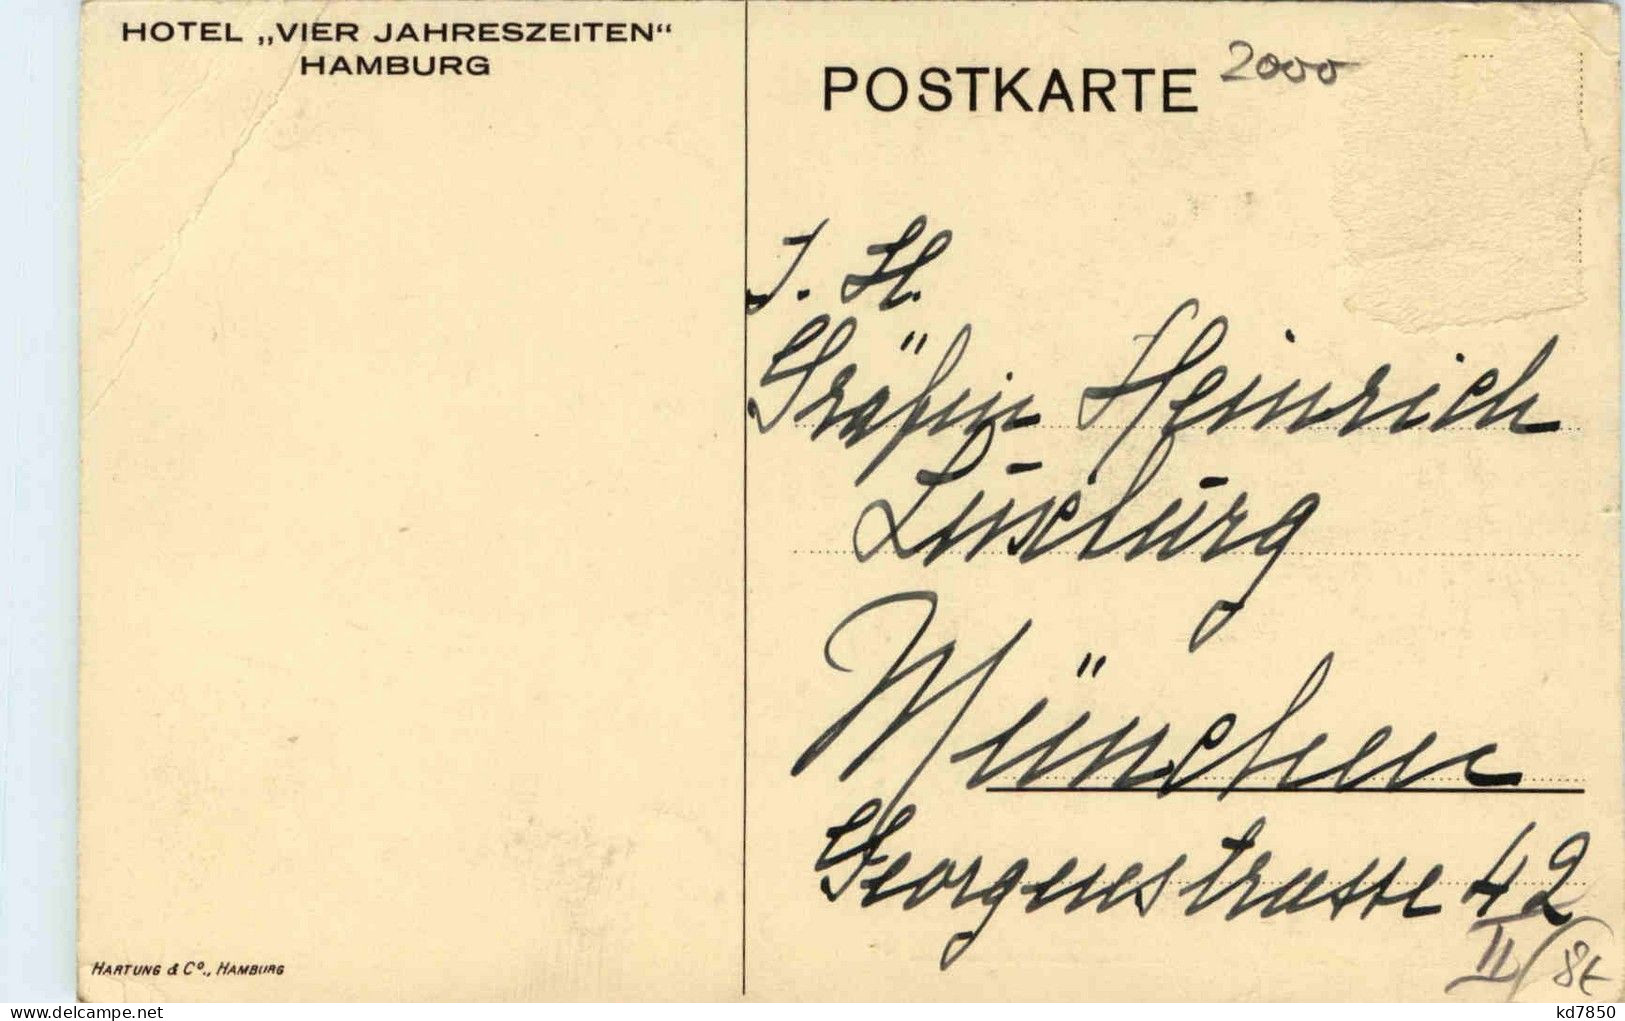 HOTEL „VIER JAHRESZEITEN“
HAMBURG
POSTKARTE
2000
I. H.
Gräfin Heinrich
Luxburg
München
Georgenstrasse 42
II/8t
HARTUNG & Cº., HAMBURG
delcampe.net
kd7850